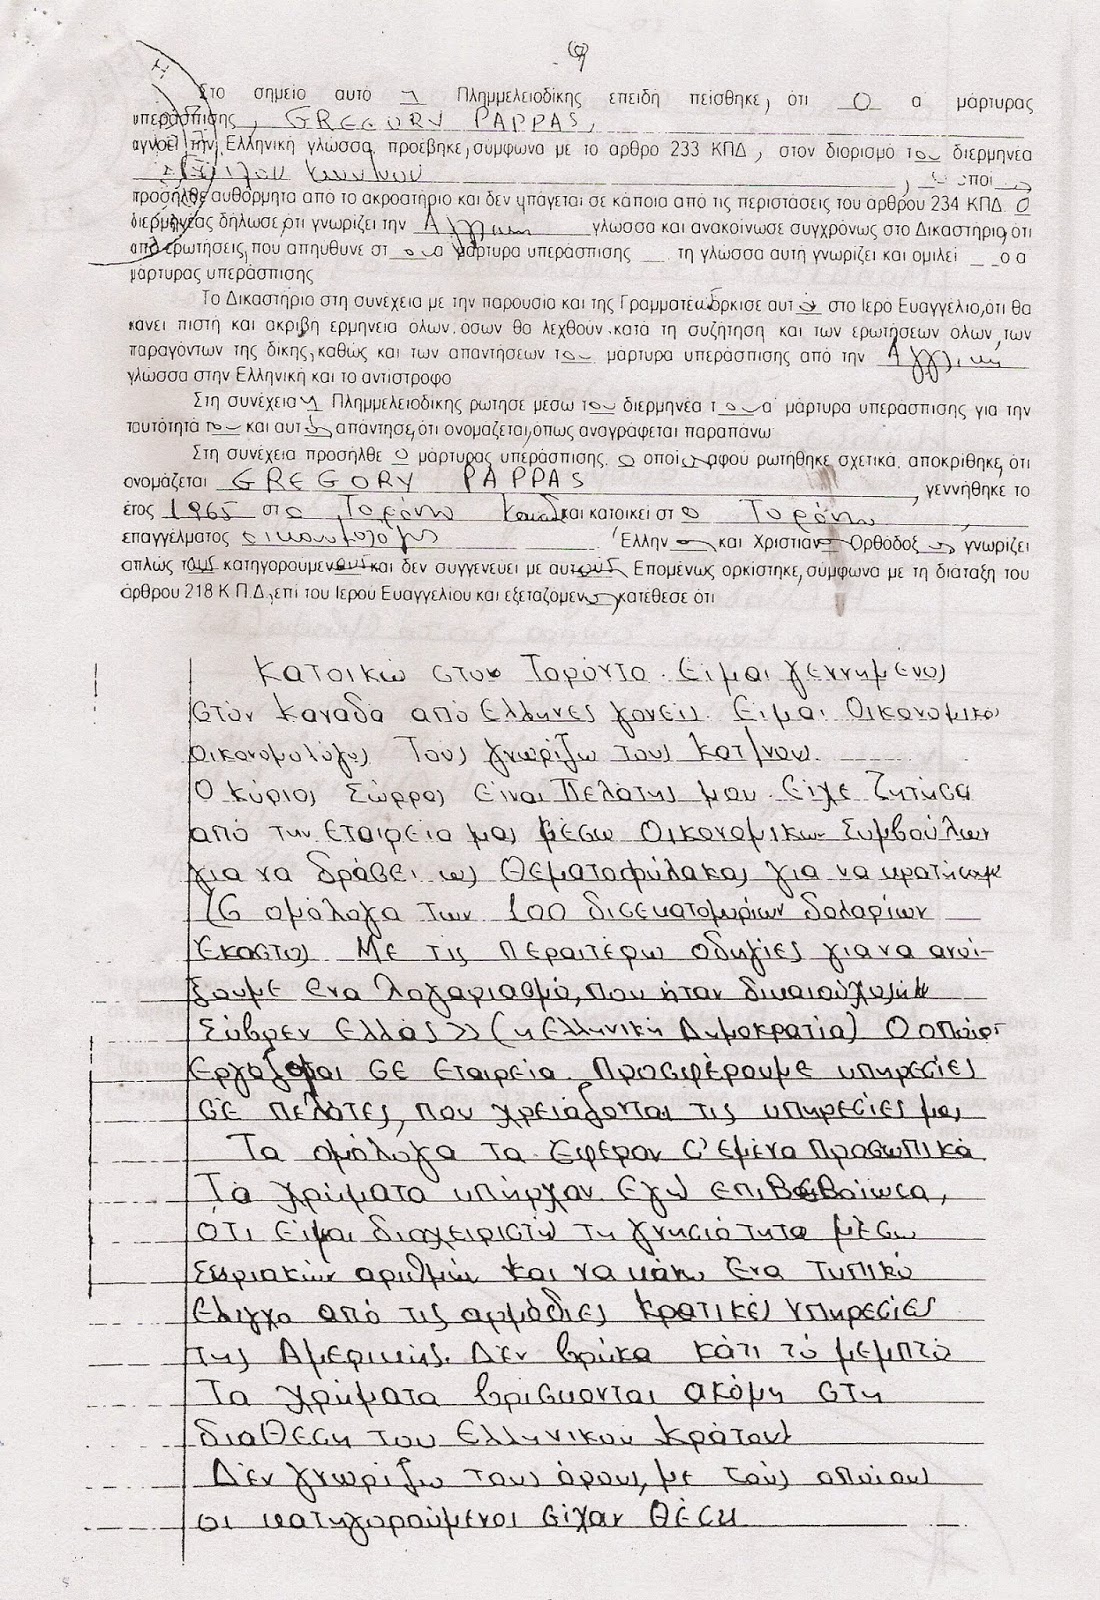 Στο σημείο αυτό η Πλημμελειοδίκης επειδή πείσθηκε, ότι ο α μάρτυρας
υπεράσπισης, GREGORY PAPPAS,
αγνοεί την Ελληνική γλώσσα, προέβηκε, σύμφωνα με το αρθρο 233 ΚΠΔ, στον διορισμό του διερμηνέα
προσήλθε αυθόρμητα από το ακροατήριο και δεν υπάγεται σε κάποια από τις περιστάσεις του άρθρου 234 ΚΠΔ. Ο
διερμηνέας δήλωσε, ότι γνωρίζει την Αγγλική γλώσσα και ανακοίνωσε συγχρόνως στο Δικαστήριο, ότι
από ερωτήσεις, που απηύθυνε στον α μάρτυρα υπεράσπισης τη γλώσσα αυτή γνωρίζει και ομιλεί ο α
μάρτυρας υπεράσπισης
Το Δικαστήριο στη συνέχεια με την παρουσία και της Γραμματέα όρκισε αυτόν στο Ιερό Ευαγγέλιο, ότι θα
κάνει πιστή και ακριβή ερμηνεία όλων όσων θα λεχθούν κατά τη συζήτηση και των ερωτήσεων όλων των
παραγόντων της δίκης, καθώς και των απαντήσεων του μάρτυρα υπεράσπισης από την Αγγλική
γλώσσα στην Ελληνική και το αντίστροφο
Στη συνέχεια η Πλημμελειοδίκης ρώτησε μέσω του διερμηνέα τον α μάρτυρα υπεράσπισης για την
ταυτότητά του και αυτός απάντησε, ότι ονομάζεται, όπως αναγράφεται παραπάνω
Στη συνέχεια προσήλθε ο μάρτυρας υπεράσπισης, ο οποίος αφού ρωτήθηκε σχετικά, αποκρίθηκε, ότι
ονομάζεται GREGORY PAPPAS, γεννήθηκε το
έτος 1965 στο Τορόντο Καναδά και κατοικεί στο Τορόντο
επαγγέλματος οικονομολόγος Έλλην και Χριστιανός Ορθόδοξος, γνωρίζει
απλώς τους κατηγορουμένους και δεν συγγενεύει με αυτούς. Επομένως ορκίστηκε, σύμφωνα με τη διάταξη του
άρθρου 218 Κ.Π.Δ., επί του Ιερού Ευαγγελίου και εξεταζόμενος κατέθεσε ότι
Κατοικώ στον Τορόντο. Είμαι γεννημένος
στον Καναδά από Ελληνες γονείς. Είμαι Οικονομικο
οικονομολόγος Τους γνωρίζω τους κατ/νους.
Ο Κύριος Σώρρας είναι Πελάτης μου. Είχε ζητήσει
από την εταιρεία μας μέσω Οικονομικών Συμβούλων
για να δράσει ως Θεματοφύλακας για να κρατήσουμε
16 ομόλογα των 100 δισεκατομυρίων δολαρίων
έκαστο. Με τις περαιτέρω οδηγίες για να ανοί-
ξουμε ένα λογαριασμό, που ήταν δικαιούχος η
Σύβρεν Ελλάς» (η Ελληνική Δημοκρατία) Ο
Εργάζομαι σε εταιρεία. Προσφέρουμε υπηρεσίες
σε πελάτες, που χρειάζονται τις υπηρεσίες μας
Τα ομόλογα τα έφεραν σ' εμένα προσωπικά.
Τα χρήματα υπήρχαν. Εγώ επιβεβαίωσα,
ότι είμαι διαχειριστής τη γνησιότητα μέσω
Σειριακών αριθμών και να κάνω ένα τυπικό
έλεγχο από τις αρμόδιες κρατικές υπηρεσίες
της Αμερικής. Δεν βρήκα κάτι το μεμπτό
Τα χρήματα βρίσκονται ακόμη στη
διάθεση του Ελληνικού Κράτους
Δεν γνωρίζω τους όρους, με τους οποίους
οι κατηγορούμενοι είχαν θέση